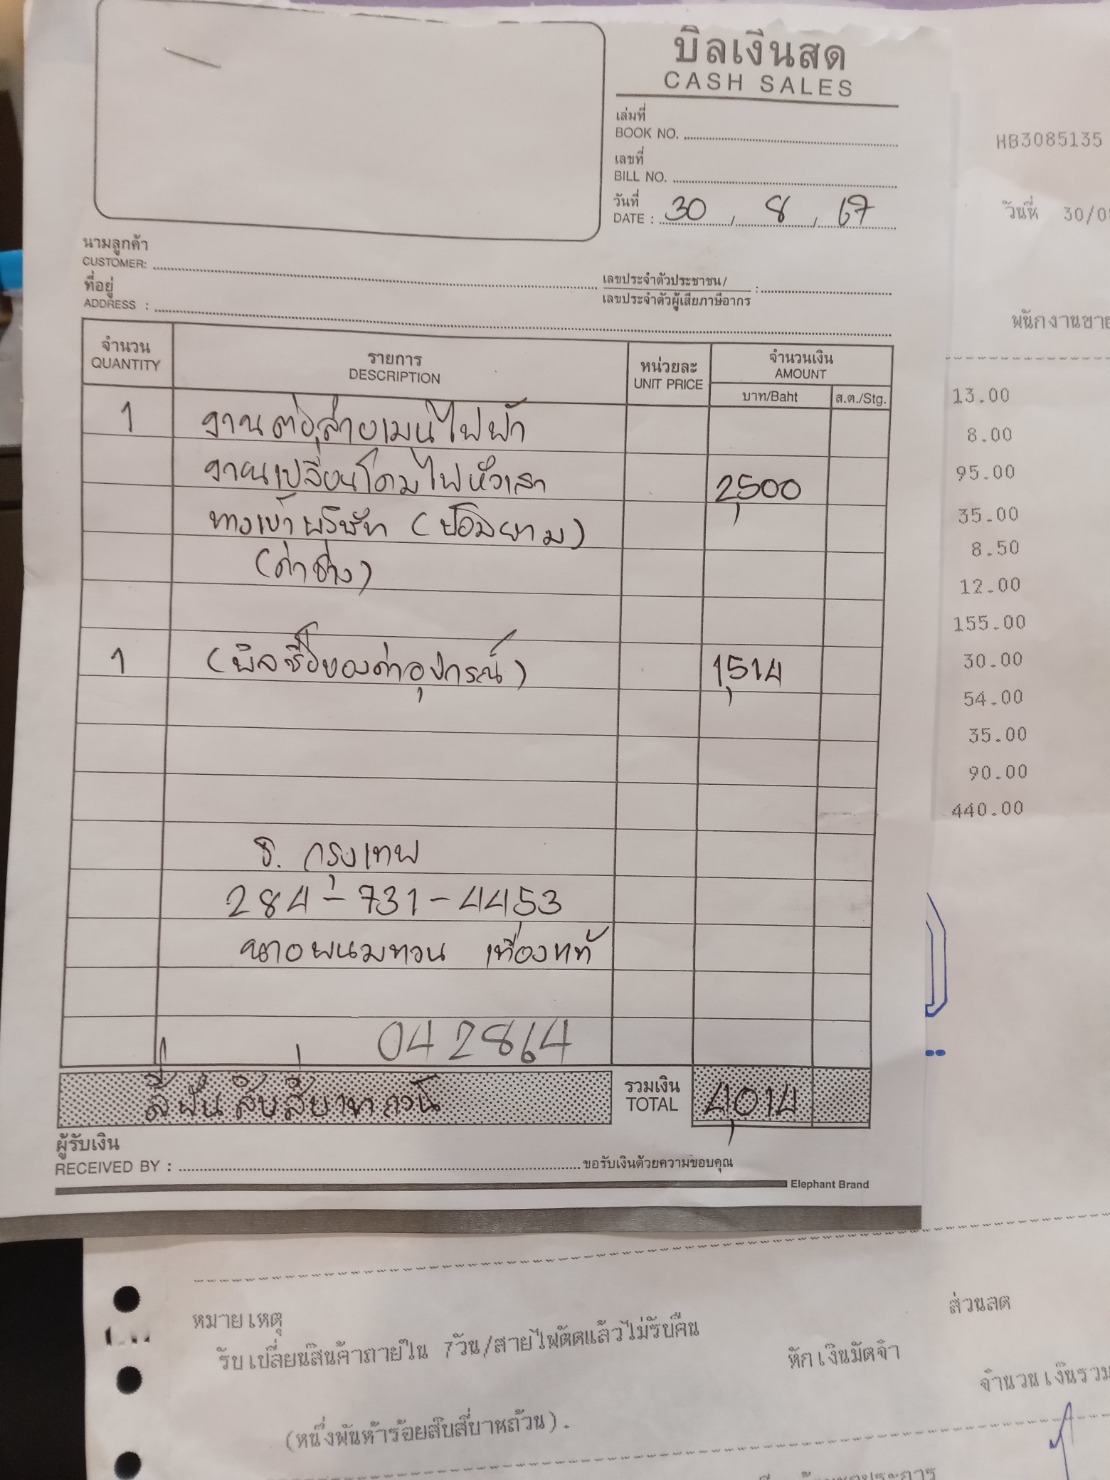 บิลเงินสด
CASH SALES
เล่มที่
BOOK NO.
เลขที่
BILL NO.
วันที่
DATE : 30 / 8 / 67
นามลูกค้า
CUSTOMER:
ที่อยู่
ADDRESS :
เลขประจำตัวประชาชน/
เลขประจำตัวผู้เสียภาษีอากร
จำนวน รายการ หน่วยละ จำนวนเงิน
QUANTITY DESCRIPTION UNIT PRICE AMOUNT
บาท/Baht ส.ต./Stg.
1 งานต่อสายเมนไฟฟ้า
งานเปลี่ยนโคมไฟหัวเสา 2,500
ทางเข้าบริษัท (ป้อมยาม)
(ค่าช่าง)
1 (บิลซื้อของค่าอุปกรณ์) 1,514
ธ. กรุงเทพ
284-731-4453
042864
สี่พันสิบสี่บาทถ้วน รวมเงิน 4,014
TOTAL
ผู้รับเงิน
RECEIVED BY : ขอรับเงินด้วยความขอบคุณ
Elephant Brand
HB3085135
วันที่ 30/0
พนักงานขาย
13.00
8.00
95.00
35.00
8.50
12.00
155.00
30.00
54.00
35.00
90.00
440.00
หมายเหตุ ส่วนลด
รับเปลี่ยนสินค้าภายใน 7วัน/สายไฟตัดแล้วไม่รับคืน หักเงินมัดจำ
จำนวนเงินรวม
(หนึ่งพันห้าร้อยสิบสี่บาทถ้วน).